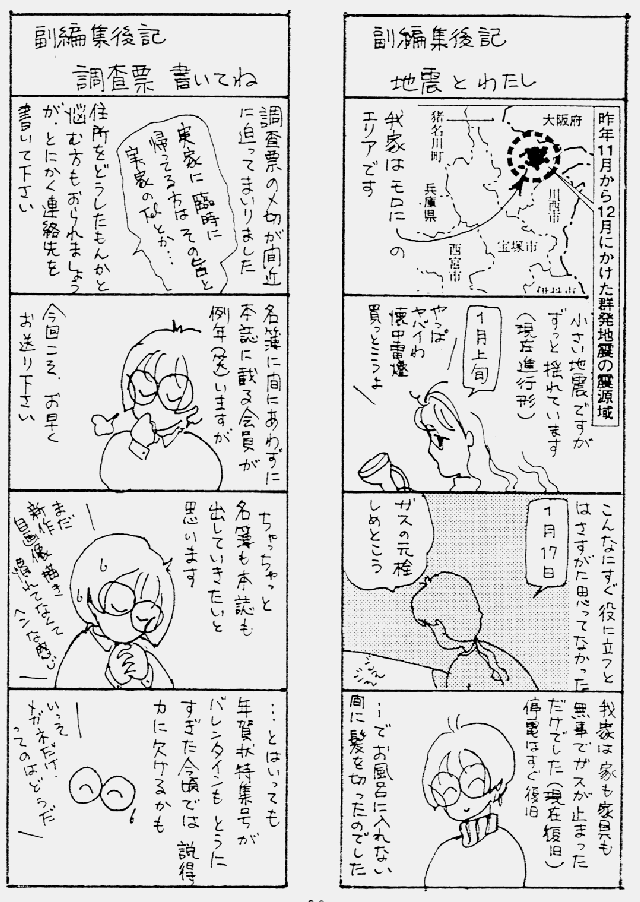 副編集後記
地震とわたし
昨年11月から12月にかけた群発地震の震源域
大阪府
猪名川町
兵庫県
川西市
宝塚市
西宮市
伊丹市
我家はモロに
この
エリアです
小さい地震ですが
ずっと揺れています
(現在進行形)
1月上旬
やっぱ
ヤバイわ
懐中電燈
買っとこうよ
こんなにすぐ役に立つと
はさすがに思ってなかった
1月17日
ガスの元栓
しめとこう
我家は家も家具も
無事でガスが止まった
だけでした(現在復旧)
停電はすぐ復旧
…でお風呂に入れない
間に髪を切ったのでした
副編集後記
調査票 書いてね
調査票の〆切が間近
に迫ってまいりました
実家に臨時に
帰ってる方はその旨と
実家の〒とか…
住所をどうしたもんかと
悩む方もおられましょう
が、とにかく連絡先を
書いて下さい
名簿に間にあわずに
本誌に載る会員が
例年多くいますが
今回こそ、お早く
お送り下さい
ちゃっちゃっと
名簿も本誌も
出していきたいと
思います
まだ
新作
自画像描き
慣れてなくて
ヘンな感じ
…とはいっても
年賀状特集号が
バレンタインもとうに
すぎた今頃では説得
力に欠けるかも
いっそ
メガネだけ!
ってのはどうだ